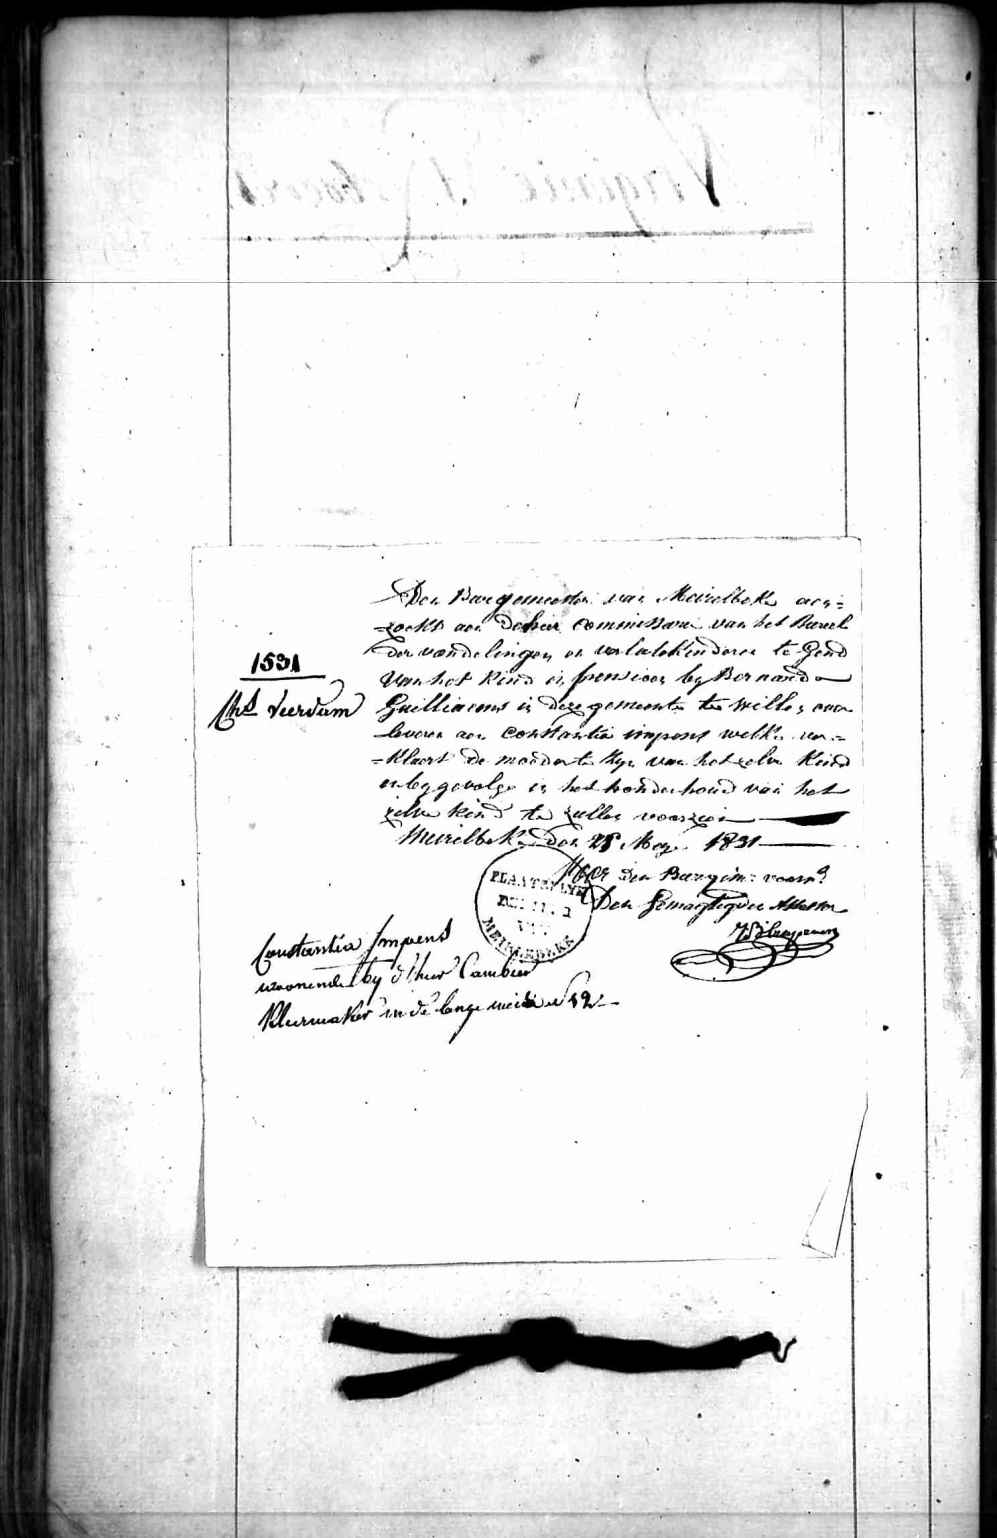 Den Burgemeester van Meirelbeke ver=
=zoekt aen deheer commissaris van het Bureel
der vondelingen en verlatekinderen te Gend
Van het kind in pensioen by Bernard
Guilliaems in deze gemeente te willen over
leveren aen Constantia impens welke ver=
=klaert de moeder te zyn van het zelve kind
en by gevolge in het onderhoud van het
zelve kind te zullen voorzien
Meirelbeke den 28 Mey 1831
voor den Burgem: voorn?
Den Gemagtigden Assessor
1531
Chs Veerdam
PLAATSELYK
MEIRLEBEKE
Constantia Impens
woonende by d'heer Cambier
kleermaker in de lange